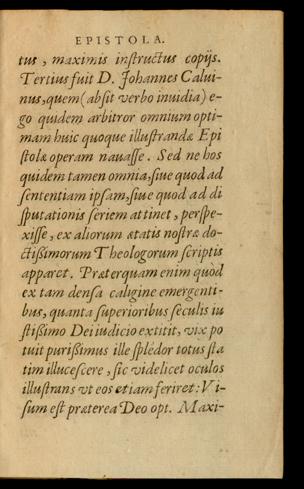 EPISTOLA.
tus, maximis instructus copijs.
Tertius fuit D. Johannes Calui-
nus, quem (absit verbo inuidia) e-
go quidem arbitror omnium opti-
mam huic quoque illustrandæ Epi
stolæ operam nauasse. Sed ne hos
quidem tamen omnia, siue quod ad
sententiam ipsam, siue quod ad di
sputationis seriem attinet, perspe-
xisse, ex aliorum ætatis nostræ do-
ctißimorum Theologorum scriptis
apparet. Præterquam enim quòd
ex tam densa caligine emergenti-
bus, quanta superioribus seculis iu
stißimo Dei iudicio extitit, vix po
tuit purißimus ille splēdor totus sta
tim illucescere, sic videlicet oculos
illustrans vt eos etiam feriret: Vi-
sum est præterea Deo opt. Maxi-